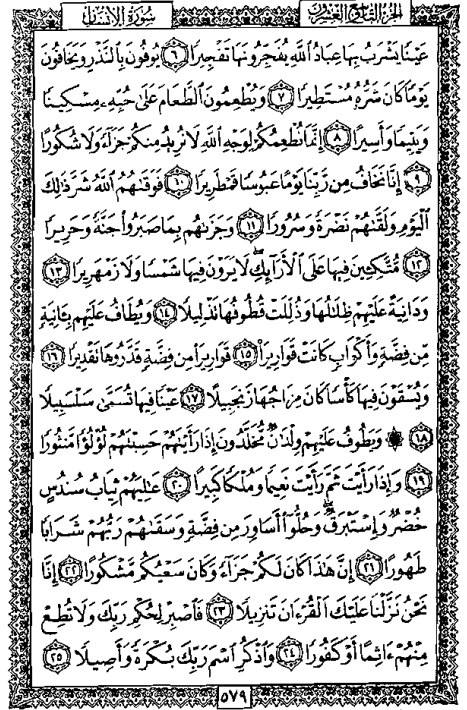 الجزء التاسع والعشرون سورة الإنسان
عَيْنًا يَشْرَبُ بِهَا عِبَادُ ٱللَّهِ يُفَجِّرُونَهَا تَفْجِيرًا ٦ يُوفُونَ بِٱلنَّذْرِ وَيَخَافُونَ
يَوْمًا كَانَ شَرُّهُۥ مُسْتَطِيرًا ٧ وَيُطْعِمُونَ ٱلطَّعَامَ عَلَىٰ حُبِّهِۦ مِسْكِينًا
وَيَتِيمًا وَأَسِيرًا ٨ إِنَّمَا نُطْعِمُكُمْ لِوَجْهِ ٱللَّهِ لَا نُرِيدُ مِنكُمْ جَزَآءً وَلَا شُكُورًا
٩ إِنَّا نَخَافُ مِن رَّبِّنَا يَوْمًا عَبُوسًا قَمْطَرِيرًا ١٠ فَوَقَىٰهُمُ ٱللَّهُ شَرَّ ذَٰلِكَ
ٱلْيَوْمِ وَلَقَّىٰهُمْ نَضْرَةً وَسُرُورًا ١١ وَجَزَىٰهُم بِمَا صَبَرُوا۟ جَنَّةً وَحَرِيرًا
١٢ مُّتَّكِـِٔينَ فِيهَا عَلَى ٱلْأَرَآئِكِ ۖ لَا يَرَوْنَ فِيهَا شَمْسًا وَلَا زَمْهَرِيرًا ١٣
وَدَانِيَةً عَلَيْهِمْ ظِلَٰلُهَا وَذُلِّلَتْ قُطُوفُهَا تَذْلِيلًا ١٤ وَيُطَافُ عَلَيْهِم بِـَٔانِيَةٍ
مِّن فِضَّةٍ وَأَكْوَابٍ كَانَتْ قَوَارِيرَا۠ ١٥ قَوَارِيرَا۟ مِن فِضَّةٍ قَدَّرُوهَا تَقْدِيرًا ١٦
وَيُسْقَوْنَ فِيهَا كَأْسًا كَانَ مِزَاجُهَا زَنجَبِيلًا ١٧ عَيْنًا فِيهَا تُسَمَّىٰ سَلْسَبِيلًا
١٨ ۞ وَيَطُوفُ عَلَيْهِمْ وِلْدَٰنٌ مُّخَلَّدُونَ إِذَا رَأَيْتَهُمْ حَسِبْتَهُمْ لُؤْلُؤًا مَّنثُورًا
١٩ وَإِذَا رَأَيْتَ ثَمَّ رَأَيْتَ نَعِيمًا وَمُلْكًا كَبِيرًا ٢٠ عَٰلِيَهُمْ ثِيَابُ سُندُسٍ
خُضْرٌ وَإِسْتَبْرَقٌ ۖ وَحُلُّوٓا۟ أَسَاوِرَ مِن فِضَّةٍ وَسَقَىٰهُمْ رَبُّهُمْ شَرَابًا
طَهُورًا ٢١ إِنَّ هَٰذَا كَانَ لَكُمْ جَزَآءً وَكَانَ سَعْيُكُم مَّشْكُورًا ٢٢ إِنَّا
نَحْنُ نَزَّلْنَا عَلَيْكَ ٱلْقُرْءَانَ تَنزِيلًا ٢٣ فَٱصْبِرْ لِحُكْمِ رَبِّكَ وَلَا تُطِعْ
مِنْهُمْ ءَاثِمًا أَوْ كَفُورًا ٢٤ وَٱذْكُرِ ٱسْمَ رَبِّكَ بُكْرَةً وَأَصِيلًا ٢٥
٥٧٩